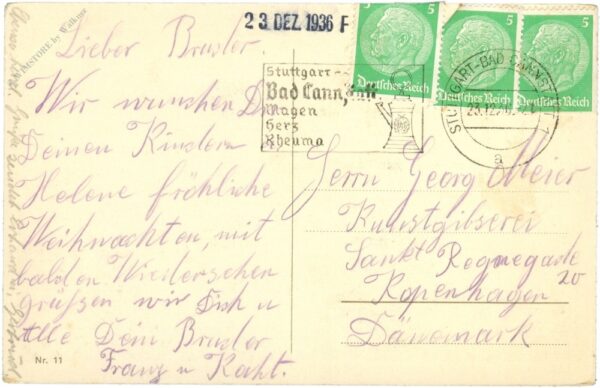 23. DEZ. 1936 F
5
5
5
Deutsches Reich
Deutsches Reich
Deutsches Reich
STUTTGART-BAD CANNSTATT
a
Stuttgart-
Bad Cannstatt
Magen
Herz
Rheuma
Lieber Bruder.
Wir wünschen Dir
Deinen Kindern u
Helene fröhliche
Weihnachten, mit
balden Wiedersehen
grüßen wir Dich u
Alle Dein Bruder
Franz u Kaht.
Herrn Georg Meier
Kunstgibserei
Sankt Regnegade
20
Kopenhagen
Dänemark
Nr. 11